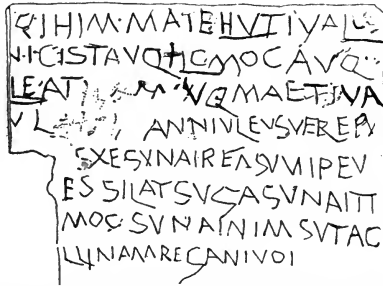 QIHIM·MATEHVTIYAL
N·I·CISTAVQHGMOCAVQ
LEATI M·VQMAETIVA
VL ANNIVLEVSVEREPV
SXESVNAIREASVMIPEV
ESSILATSVGASVNAITI
MOC·SVNAINIMSVTAC
LVNAMREGANIVOI